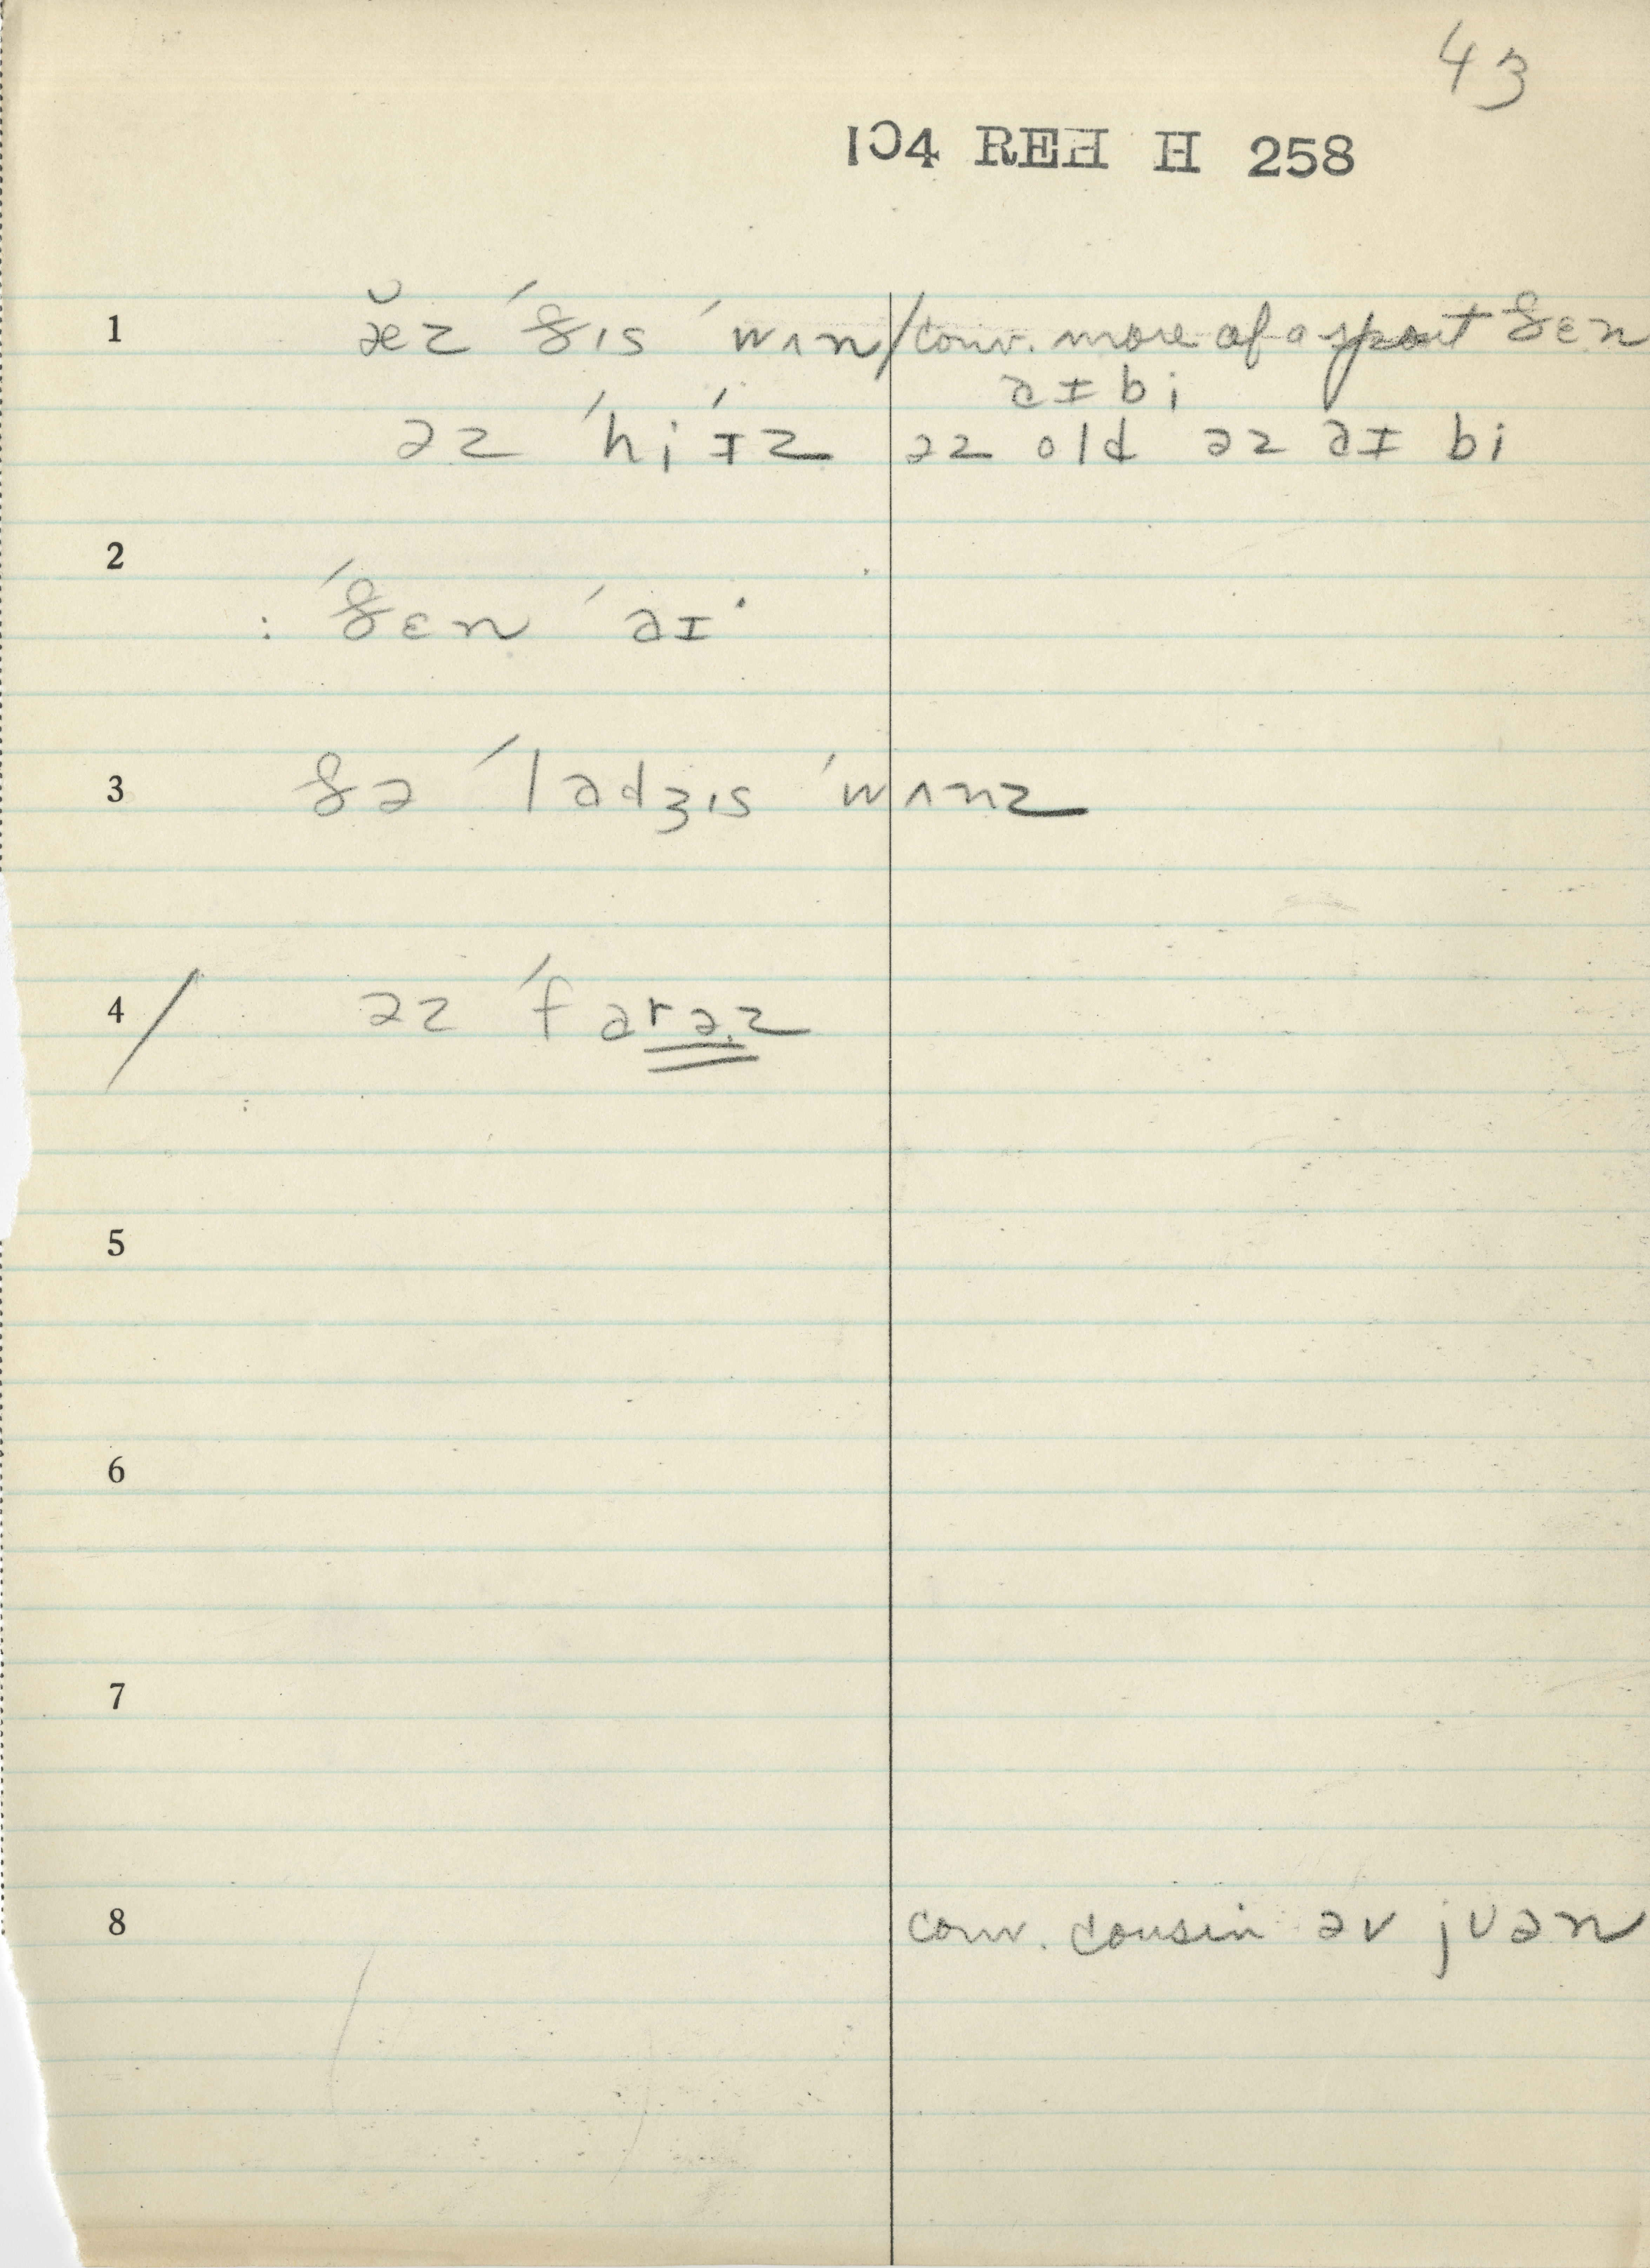 43
104 REH H 258
1 æ̆z ˈðɪs ˈwʌn / conv. more of a sport ðɛn
aɪ bi
əz ˈhi ˈɪz əz old əz aɪ bi
2
: ˈðɛn ˈaɪ·
3 ðə ˈladʒɪs ˈwʌnz
4 / əz ˈfarəz
5
6
7
8 conv. cousin əv juən